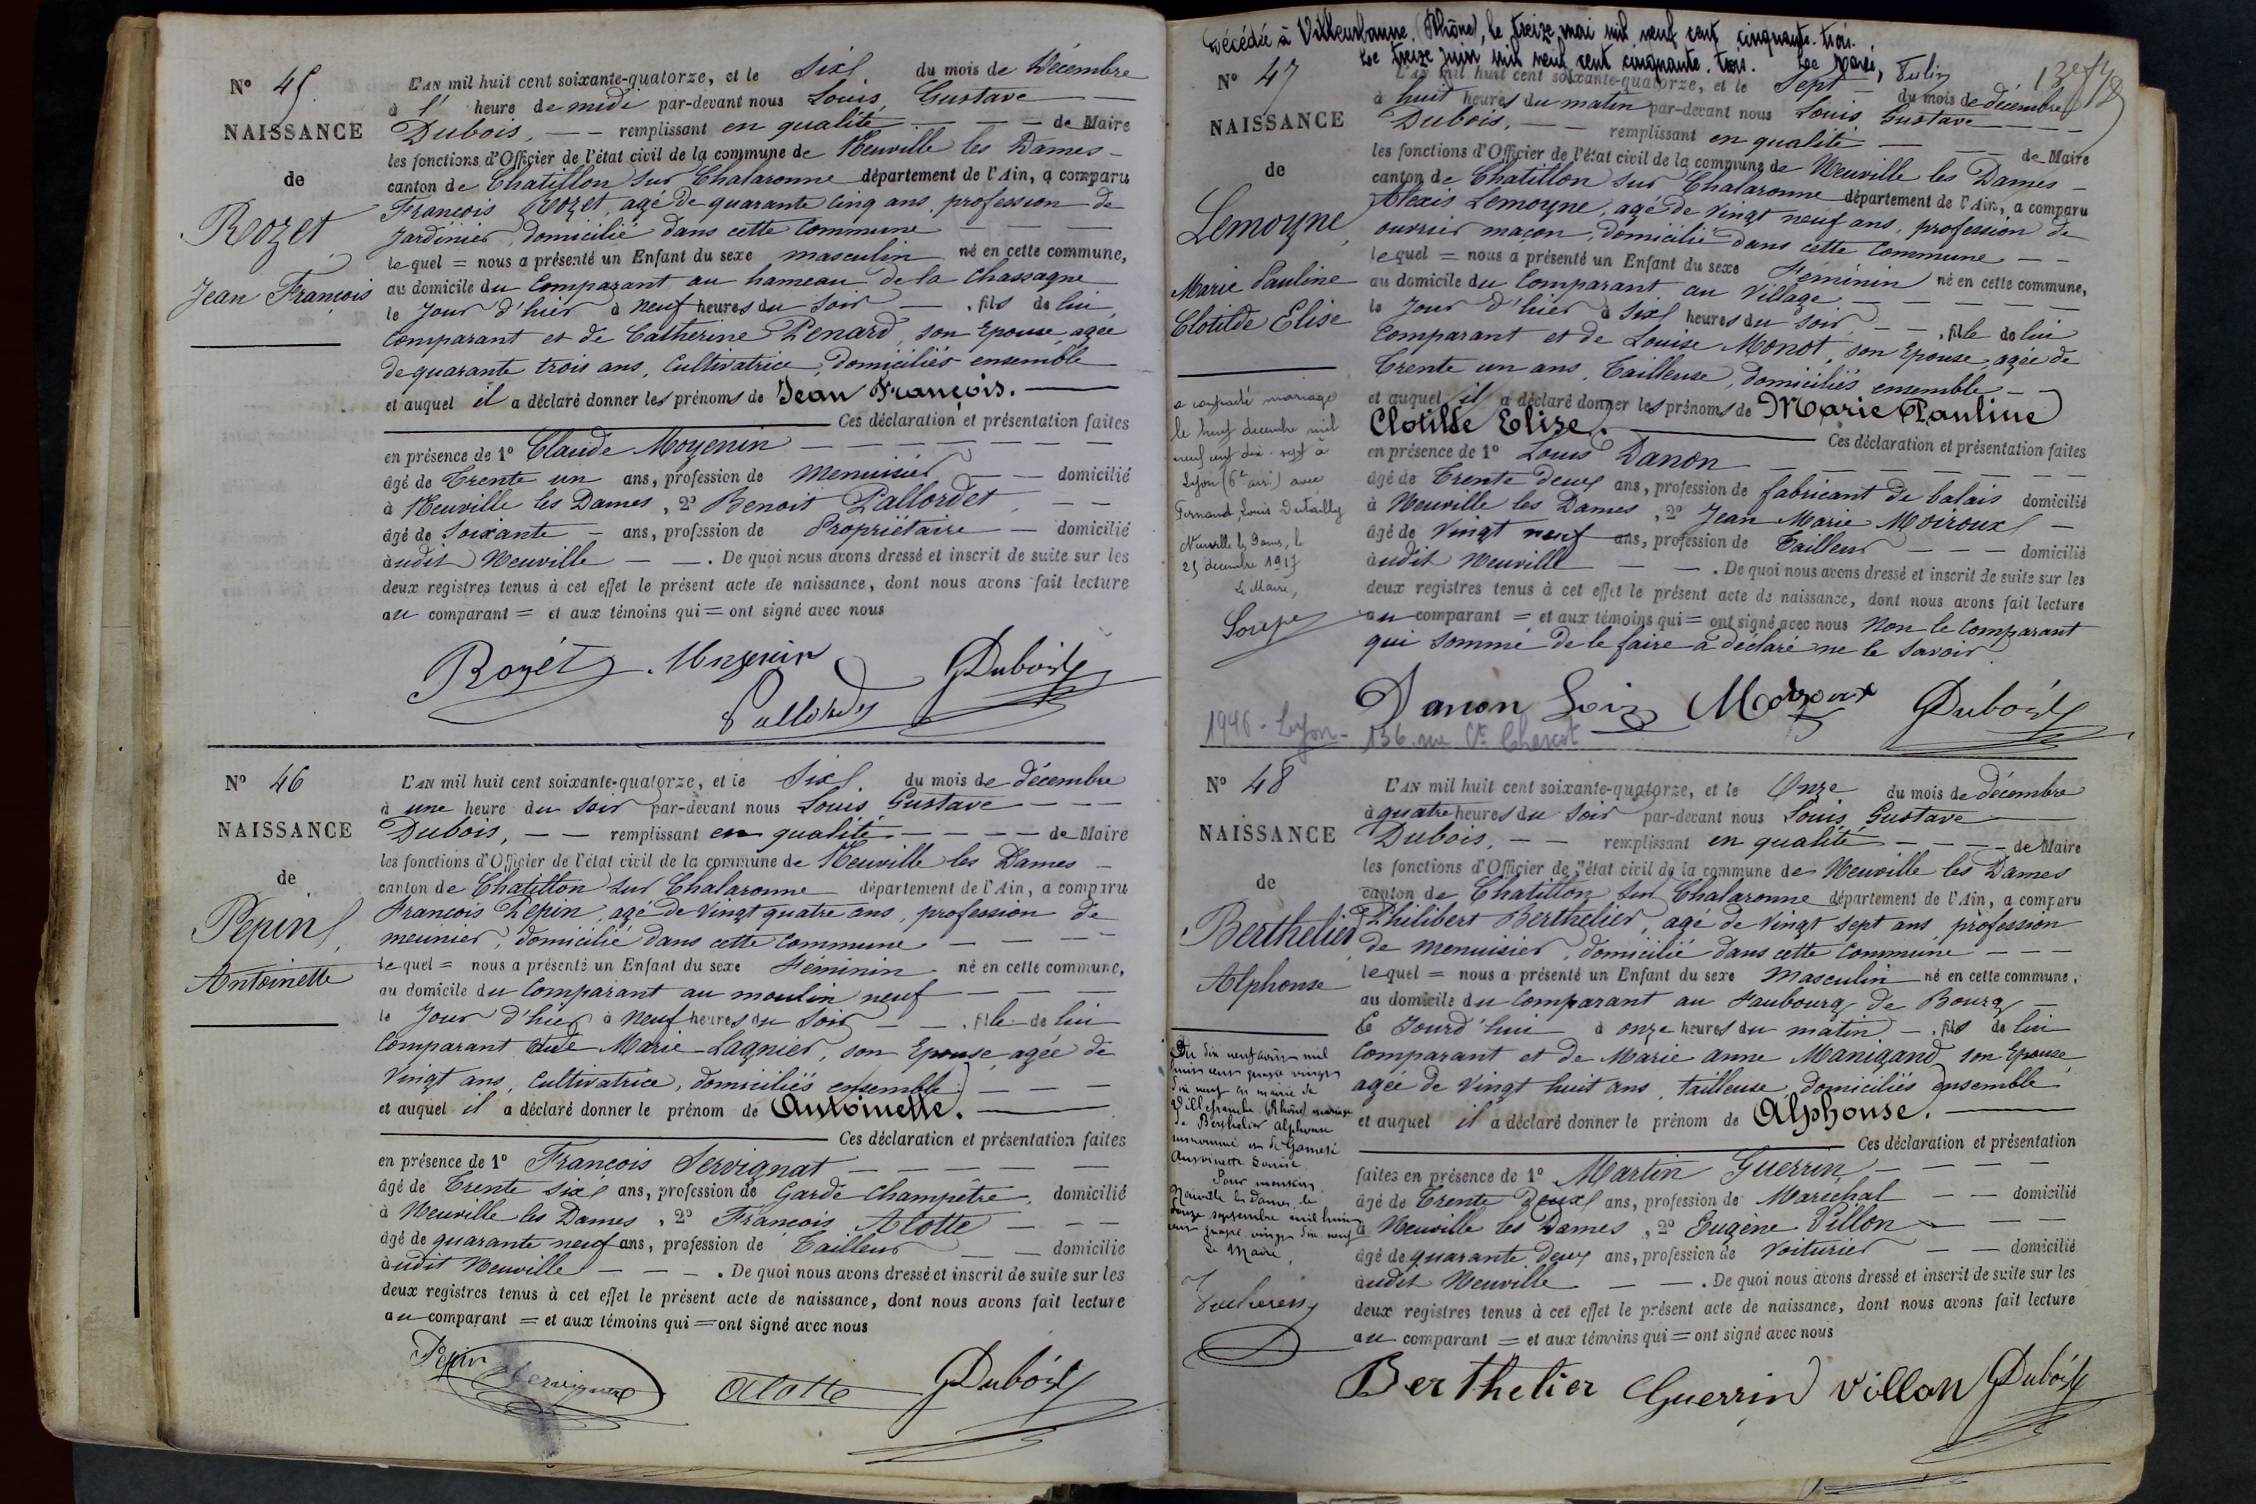 Nº 45
NAISSANCE
de
Rozet
Jean François
L'AN mil huit cent soixante-quatorze, et le Six du mois de Décembre
à l' heure de midi par-devant nous Louis, Gustave
Dubois, remplissant en qualité de Maire
les fonctions d'Officier de l'état civil de la commune de Neuville les Dames
canton de Chatillon sur Chalaronne département de l'Ain, a comparu
François Rozet, agé de quarante cinq ans, profession de
Jardinier, domicilié dans cette commune
lequel = nous a présenté un Enfant du sexe masculin né en cette commune,
au domicile du Comparant au hameau de la Chassagne
le Jour d'hier à neuf heures du soir, fils de lui
Comparant et de Catherine Penard, son Epouse, agée
de quarante trois ans, Cultivatrice, domiciliés ensemble
et auquel il a déclaré donner les prénoms de Jean François.
Ces déclaration et présentation faites
en présence de 1º Claude Moyenin
âgé de Trente un ans, profession de Menuisier domicilié
à Neuville les Dames, 2º Benoit Pallordet
âgé de Soixante ans, profession de Propriétaire domicilié
audit Neuville. De quoi nous avons dressé et inscrit de suite sur les
deux registres tenus à cet effet le présent acte de naissance, dont nous avons fait lecture
au comparant = et aux témoins qui = ont signé avec nous
Rozet Moyenin Dubois
Pallordet
Nº 46
NAISSANCE
de
Pepin
Antoinette
L'AN mil huit cent soixante-quatorze, et le Six du mois de décembre
à une heure du soir par-devant nous Louis, Gustave
Dubois, remplissant en qualité de Maire
les fonctions d'Officier de l'état civil de la commune de Neuville les Dames
canton de Chatillon sur Chalaronne département de l'Ain, a comparu
François Pepin, agé de vingt quatre ans, profession de
meunier, domicilié dans cette commune
lequel = nous a présenté un Enfant du sexe Féminin né en cette commune,
au domicile du Comparant au moulin neuf
le Jour d'hier à Neuf heures du Soir, fille de lui
Comparant et de Marie Lagnier, son Epouse, agée de
Vingt ans, Cultivatrice, domiciliés ensemble
et auquel il a déclaré donner le prénom de Antoinette.
Ces déclaration et présentation faites
en présence de 1º François Servignat
âgé de Trente six ans, profession de Garde Champêtre domicilié
à Neuville les Dames, 2º François Alotte
âgé de quarante neuf ans, profession de Tailleur domicilié
audit Neuville. De quoi nous avons dressé et inscrit de suite sur les
deux registres tenus à cet effet le présent acte de naissance, dont nous avons fait lecture
au comparant = et aux témoins qui = ont signé avec nous
Pepin Servignat Alotte Dubois
Décédée à Villeurbanne (Rhône), le treize mai mil neuf cent cinquante-trois.
Le treize juin mil neuf cent cinquante-trois. Le Maire,
Nº 47
NAISSANCE
de
Lemoyne,
Marie Pauline
Clotilde Elise
a contracté mariage
le neuf decembre mil
neuf cent dix-sept à
Lyon (6e arr.) avec
Fernand, Louis Dutailly
Neuville les Dames, le
25 decembre 1917
Le Maire,
L'AN mil huit cent soixante-quatorze, et le Sept du mois de décembre
à huit heures du matin par-devant nous Louis Gustave
Dubois, remplissant en qualité de Maire
les fonctions d'Officier de l'état civil de la commune de Neuville les Dames
canton de Chatillon sur Chalaronne département de l'Ain, a comparu
Alexis Lemoyne, agé de vingt neuf ans, profession de
ouvrier maçon, domicilié dans cette commune
lequel = nous a présenté un Enfant du sexe Féminin né en cette commune,
au domicile du Comparant au Village
le Jour d'hier à six heures du soir, fille de lui
Comparant et de Louise Monot, son Epouse, agée de
Trente un ans, Tailleuse, domiciliés ensemble
et auquel il a déclaré donner les prénoms de Marie Pauline
Clotilde Elise.
Ces déclaration et présentation faites
en présence de 1º Louis Danon
âgé de Trente deux ans, profession de fabricant de balais domicilié
à Neuville les Dames, 2º Jean Marie Moiroux
âgé de Vingt neuf ans, profession de Tailleur domicilié
audit Neuville. De quoi nous avons dressé et inscrit de suite sur les
deux registres tenus à cet effet le présent acte de naissance, dont nous avons fait lecture
au comparant = et aux témoins qui = ont signé avec nous Non le Comparant
qui sommé de le faire a déclaré ne le savoir.
Danon Moiroux Dubois
1946 - Lyon - 156 rue Ct Charcot
Nº 48
NAISSANCE
de
Berthelier
Alphonse
Du dix neuf août mil
huit cent quatre vingt
dix neuf en mairie de
Villefranche (Rhône) mariage
de Berthelier Alphonse
Antoinette Louise
Pour mention
Neuville les Dames, le
douze septembre mil huit
cent quatre vingt dix neuf
Le Maire,
L'AN mil huit cent soixante-quatorze, et le Onze du mois de décembre
à quatre heures du soir par-devant nous Louis, Gustave
Dubois, remplissant en qualité de Maire
les fonctions d'Officier de l'état civil de la commune de Neuville les Dames
canton de Chatillon sur Chalaronne département de l'Ain, a comparu
Philibert Berthelier, agé de vingt sept ans, profession
de menuisier, domicilié dans cette commune
lequel = nous a présenté un Enfant du sexe Masculin né en cette commune,
au domicile du Comparant au Faubourg de Bourg
le Jourd'hui à onze heures du matin, fils de lui
Comparant et de Marie anne Manigand son Epouse
agée de Vingt huit ans, tailleuse, domiciliés ensemble
et auquel il a déclaré donner le prénom de Alphonse.
Ces déclaration et présentation
faites en présence de 1º Martin Guerrin
âgé de Trente Deux ans, profession de Maréchal domicilié
à Neuville les Dames, 2º Eugène Villon
âgé de quarante deux ans, profession de Voiturier domicilié
audit Neuville. De quoi nous avons dressé et inscrit de suite sur les
deux registres tenus à cet effet le présent acte de naissance, dont nous avons fait lecture
au comparant = et aux témoins qui = ont signé avec nous
Berthelier Guerrin Villon Dubois